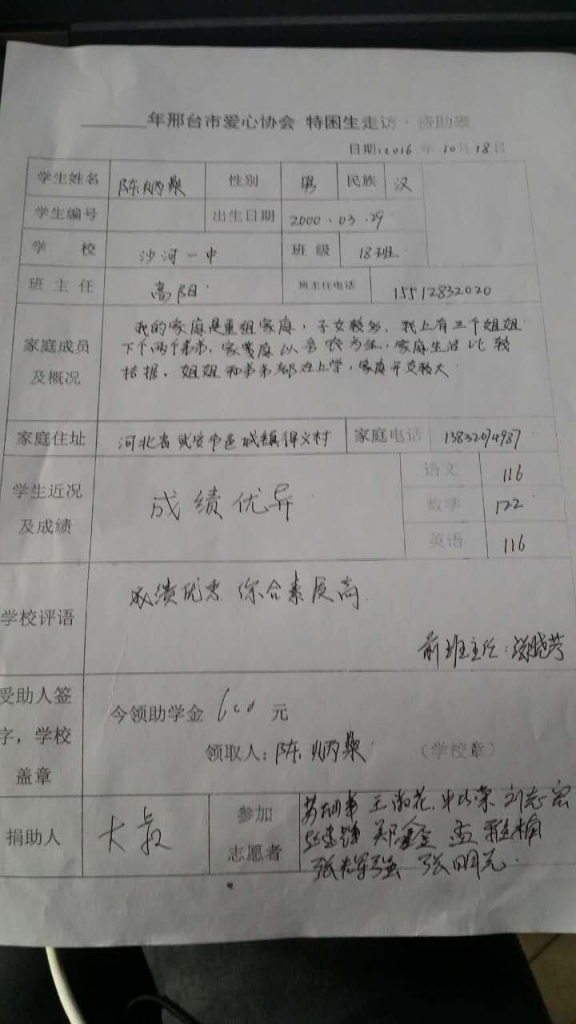 年邢台市爱心协会 特困生走访·资助表
日期:2016年10月18日
学生姓名 陈炳燊 性别 男 民族 汉
学生编号 出生日期 2000.03.29
学校 沙河一中 班级 18班
班主任 高阳 班主任电话 15512832020
家庭成员及概况
我的家庭是重组家庭,子女较多,我上有三个姐姐
下个两个弟弟,家庭以务农为生,家庭生活比较
拮据。姐姐和弟弟都在上学,家庭开支较大
家庭住址 河北省武安市邑城镇得义村 家庭电话 13832074987
学生近况及成绩 成绩优异
语文 116
数学 122
英语 116
学校评语 成绩优秀 综合素质高
前班主任:张晓芳
受助人签字,学校盖章
今领助学金 600 元
领取人:陈炳燊 (学校章)
捐助人 大叔 参加志愿者
王淑花 刘志宏
郑鑫 孟雅楠
张辉强 张明元